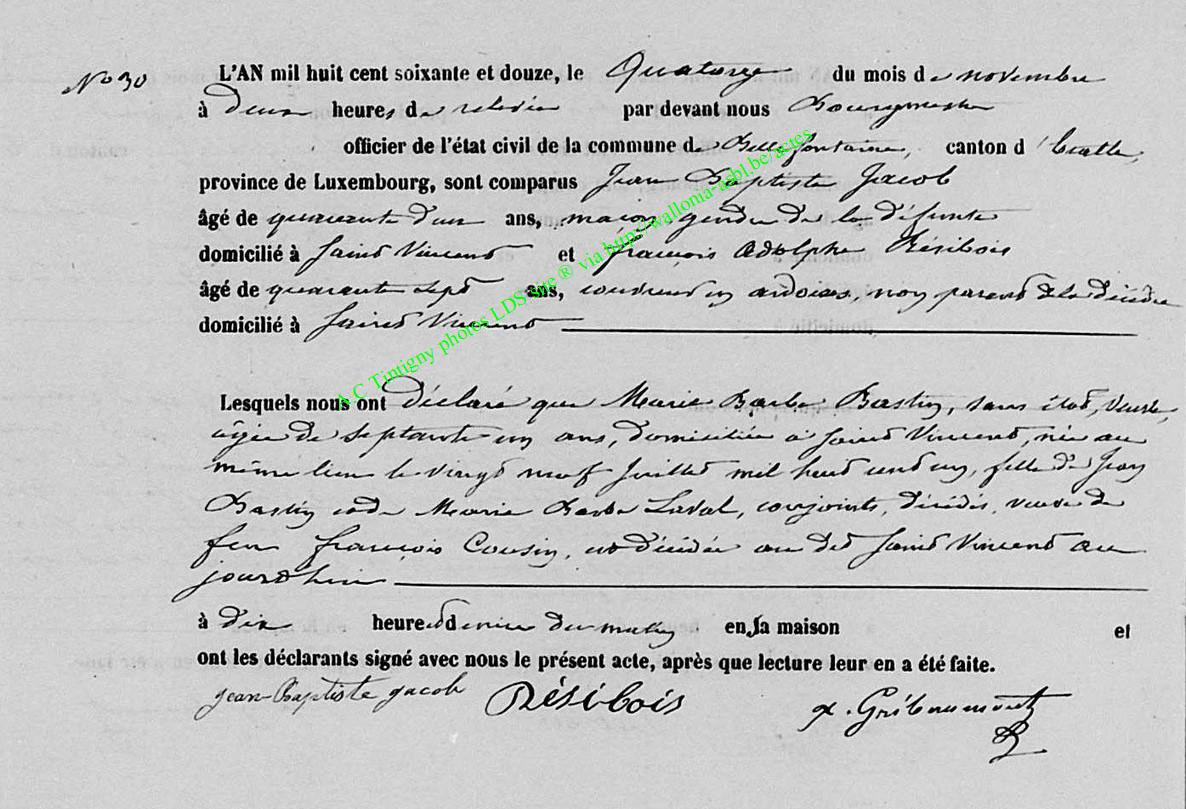 No 30 L'AN mil huit cent soixante et douze, le Quatorze du mois de novembre
à deux heures de relevée par devant nous Bourgmestre
officier de l'état civil de la commune de Bellefontaine, canton d'Etalle,
province de Luxembourg, sont comparus Jean Baptiste Jacob
âgé de quarante d'un ans, maçon, gendre de la défunte
domicilié à Saint Vincent et françois Adolphe Résibois
âgé de quarante sept ans, couvreur en ardoises, non parent de la décédée
domicilié à Saint Vincent
A.C Tintigny photos LDS site ® via http://wallonia-asbl.be/actes
Lesquels nous ont déclaré que Marie Barbe Bastin, sans état, veuve,
âgée de septante un ans, domiciliée à Saint Vincent, née au
même lieu le vingt neuf Juillet mil huit cent un, fille de Jean
Bastin et de Marie Barbe Laval, conjoints, décédés, veuve de
feu françois Cousin, est décédée au dit Saint Vincent au
jourd'hui
à dix heures du matin en sa maison et
ont les déclarants signé avec nous le présent acte, après que lecture leur en a été faite.
jean-Baptiste jacob Résibois x. Gribaumont